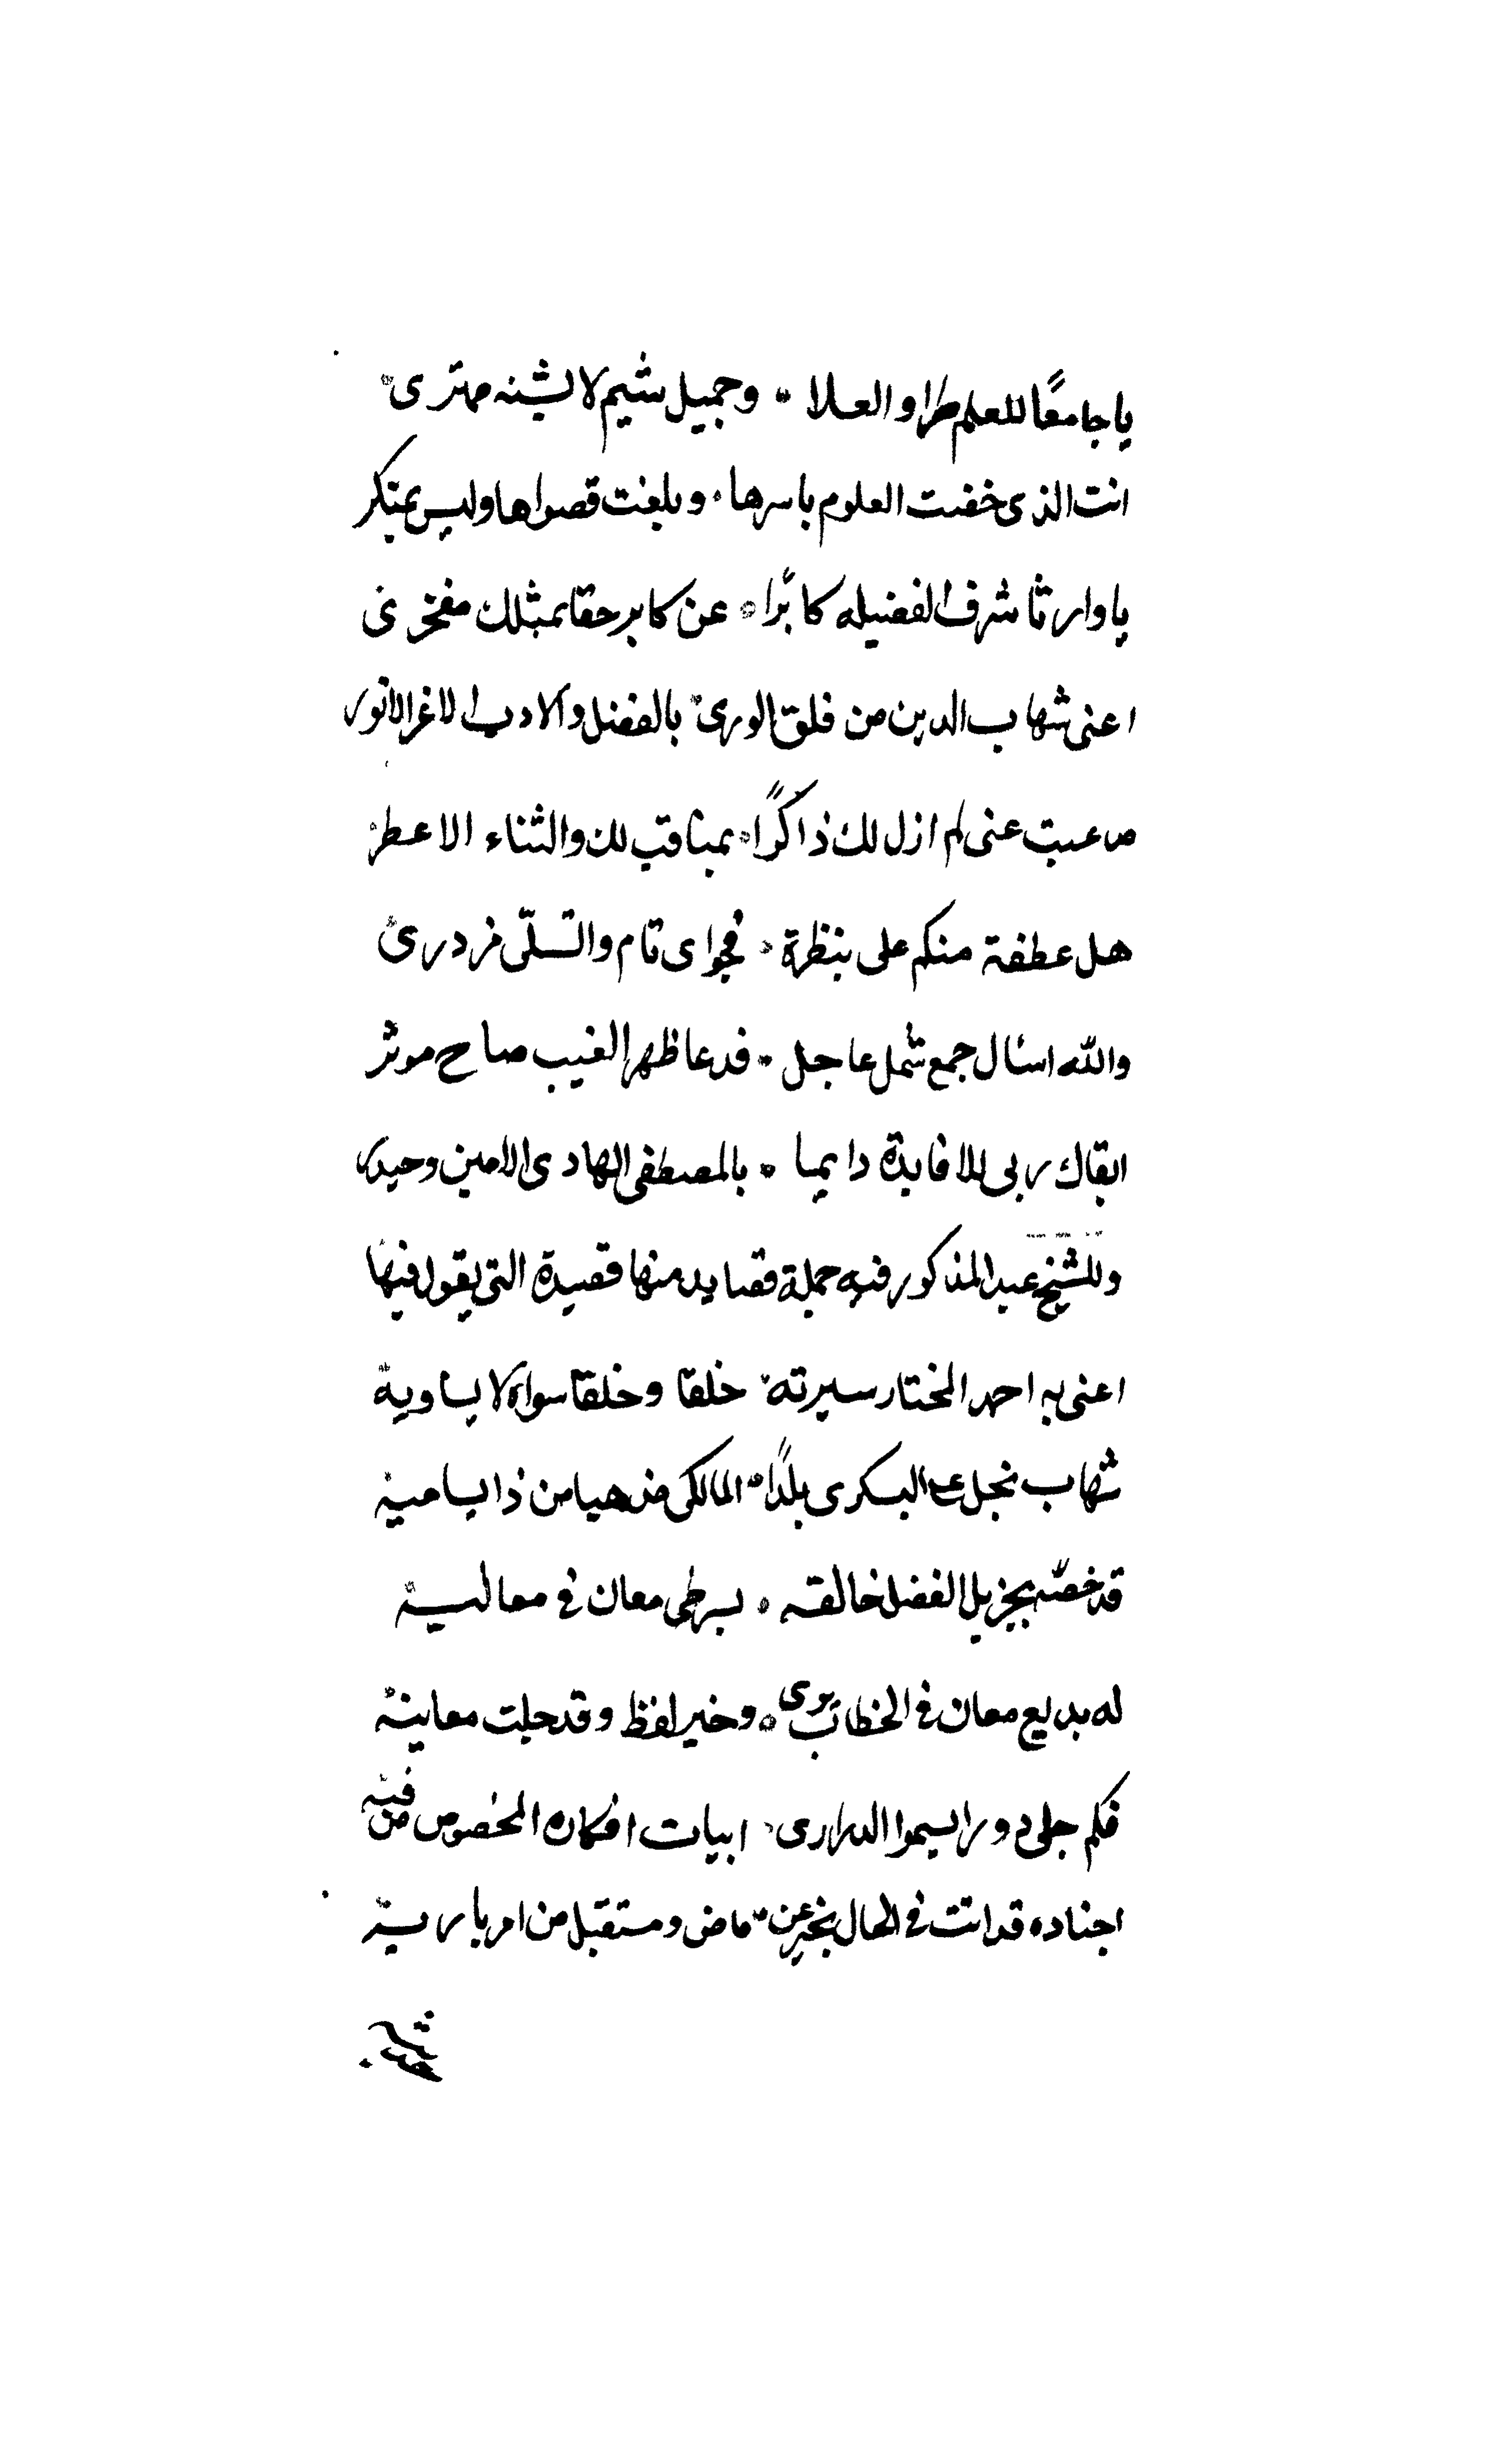 يا جامعًا للعلم طرا والعلا * وجميل شيم لا يشنه مهترى
انت الذى خضت العلوم باسرها * وبلغت قصواها وليس بمنكر
يا وارثا شرف الفضيله كابرًا * عن كابر حقا بمثلك مفخرى
اعنى شهاب الدين من فلق الورى * بالفضل والادب الاغر الانور
عنى لم ازل لك ذاكرًا * بمناقب لك والثناء الاعطر
هل عطفة منكم على بنظرة * فجواى نام والتسلّى مزدرى
والله اسئال جمع شمل عاجل * فدعا ظهر الغيب صاح موثر
ابقاك ربى للافايدة دايما * بالمصطفى الهادى الامين وحيدر
وللشيخ عبد المذكور فيه جملة قصايد منها قصيدة التى يقول فيها
اعنى به احمد المختار سيرته * خلقا وخلقا سواه لا يساويه
شهاب نجل على البسكرى بلدًا * المالكى مذهبا من ذا يساميه
قد خصّه بجزيل الفضل خالقه * معان فى معاليه
له بديع معان فى الخطائب يرى * وخير لفظ وقد جلت معانيه
فكم جلى دورا يسموا الدرارى * ابيات افكاره المخصوص من فيه
اجناده قد اتت فى الحال تخبر عن * ماض ومستقبل من امر باريه